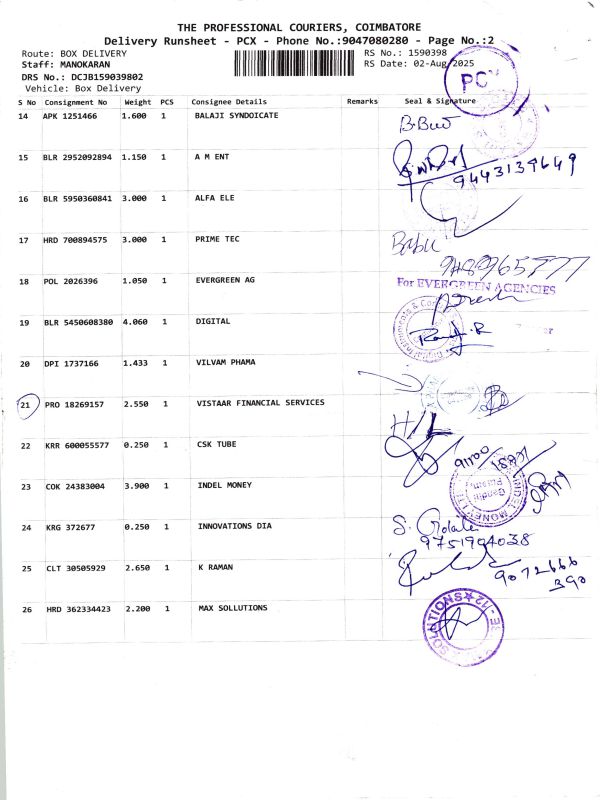 THE PROFESSIONAL COURIERS, COIMBATORE
Delivery Runsheet - PCX - Phone No.:9047080280 - Page No.:2
Route: BOX DELIVERY RS No.: 1590398
Staff: MANOKARAN RS Date: 02-Aug-2025
DRS No.: DCJB159039802
Vehicle: Box Delivery
PCX
S No Consignment No Weight PCS Consignee Details Remarks Seal & Signature
14 APK 1251466 1.600 1 BALAJI SYNDOICATE
15 BLR 2952092894 1.150 1 A M ENT
9443139649
16 BLR 5950360841 3.000 1 ALFA ELE
17 HRD 700894575 3.000 1 PRIME TEC Babu
18 POL 2026396 1.050 1 EVERGREEN AG For EVERGREEN AGENCIES
19 BLR 5450608380 4.060 1 DIGITAL
20 DPI 1737166 1.433 1 VILVAM PHAMA
21 PRO 18269157 2.550 1 VISTAAR FINANCIAL SERVICES
H/L
22 KRR 600055577 0.250 1 CSK TUBE
23 COK 24383004 3.900 1 INDEL MONEY INDEL MONEY
Gandhi
24 KRG 372677 0.250 1 INNOVATIONS DIA
9751904038
25 CLT 30505929 2.650 1 K RAMAN
9072666
390
26 HRD 362334423 2.200 1 MAX SOLLUTIONS SOLUTIONS